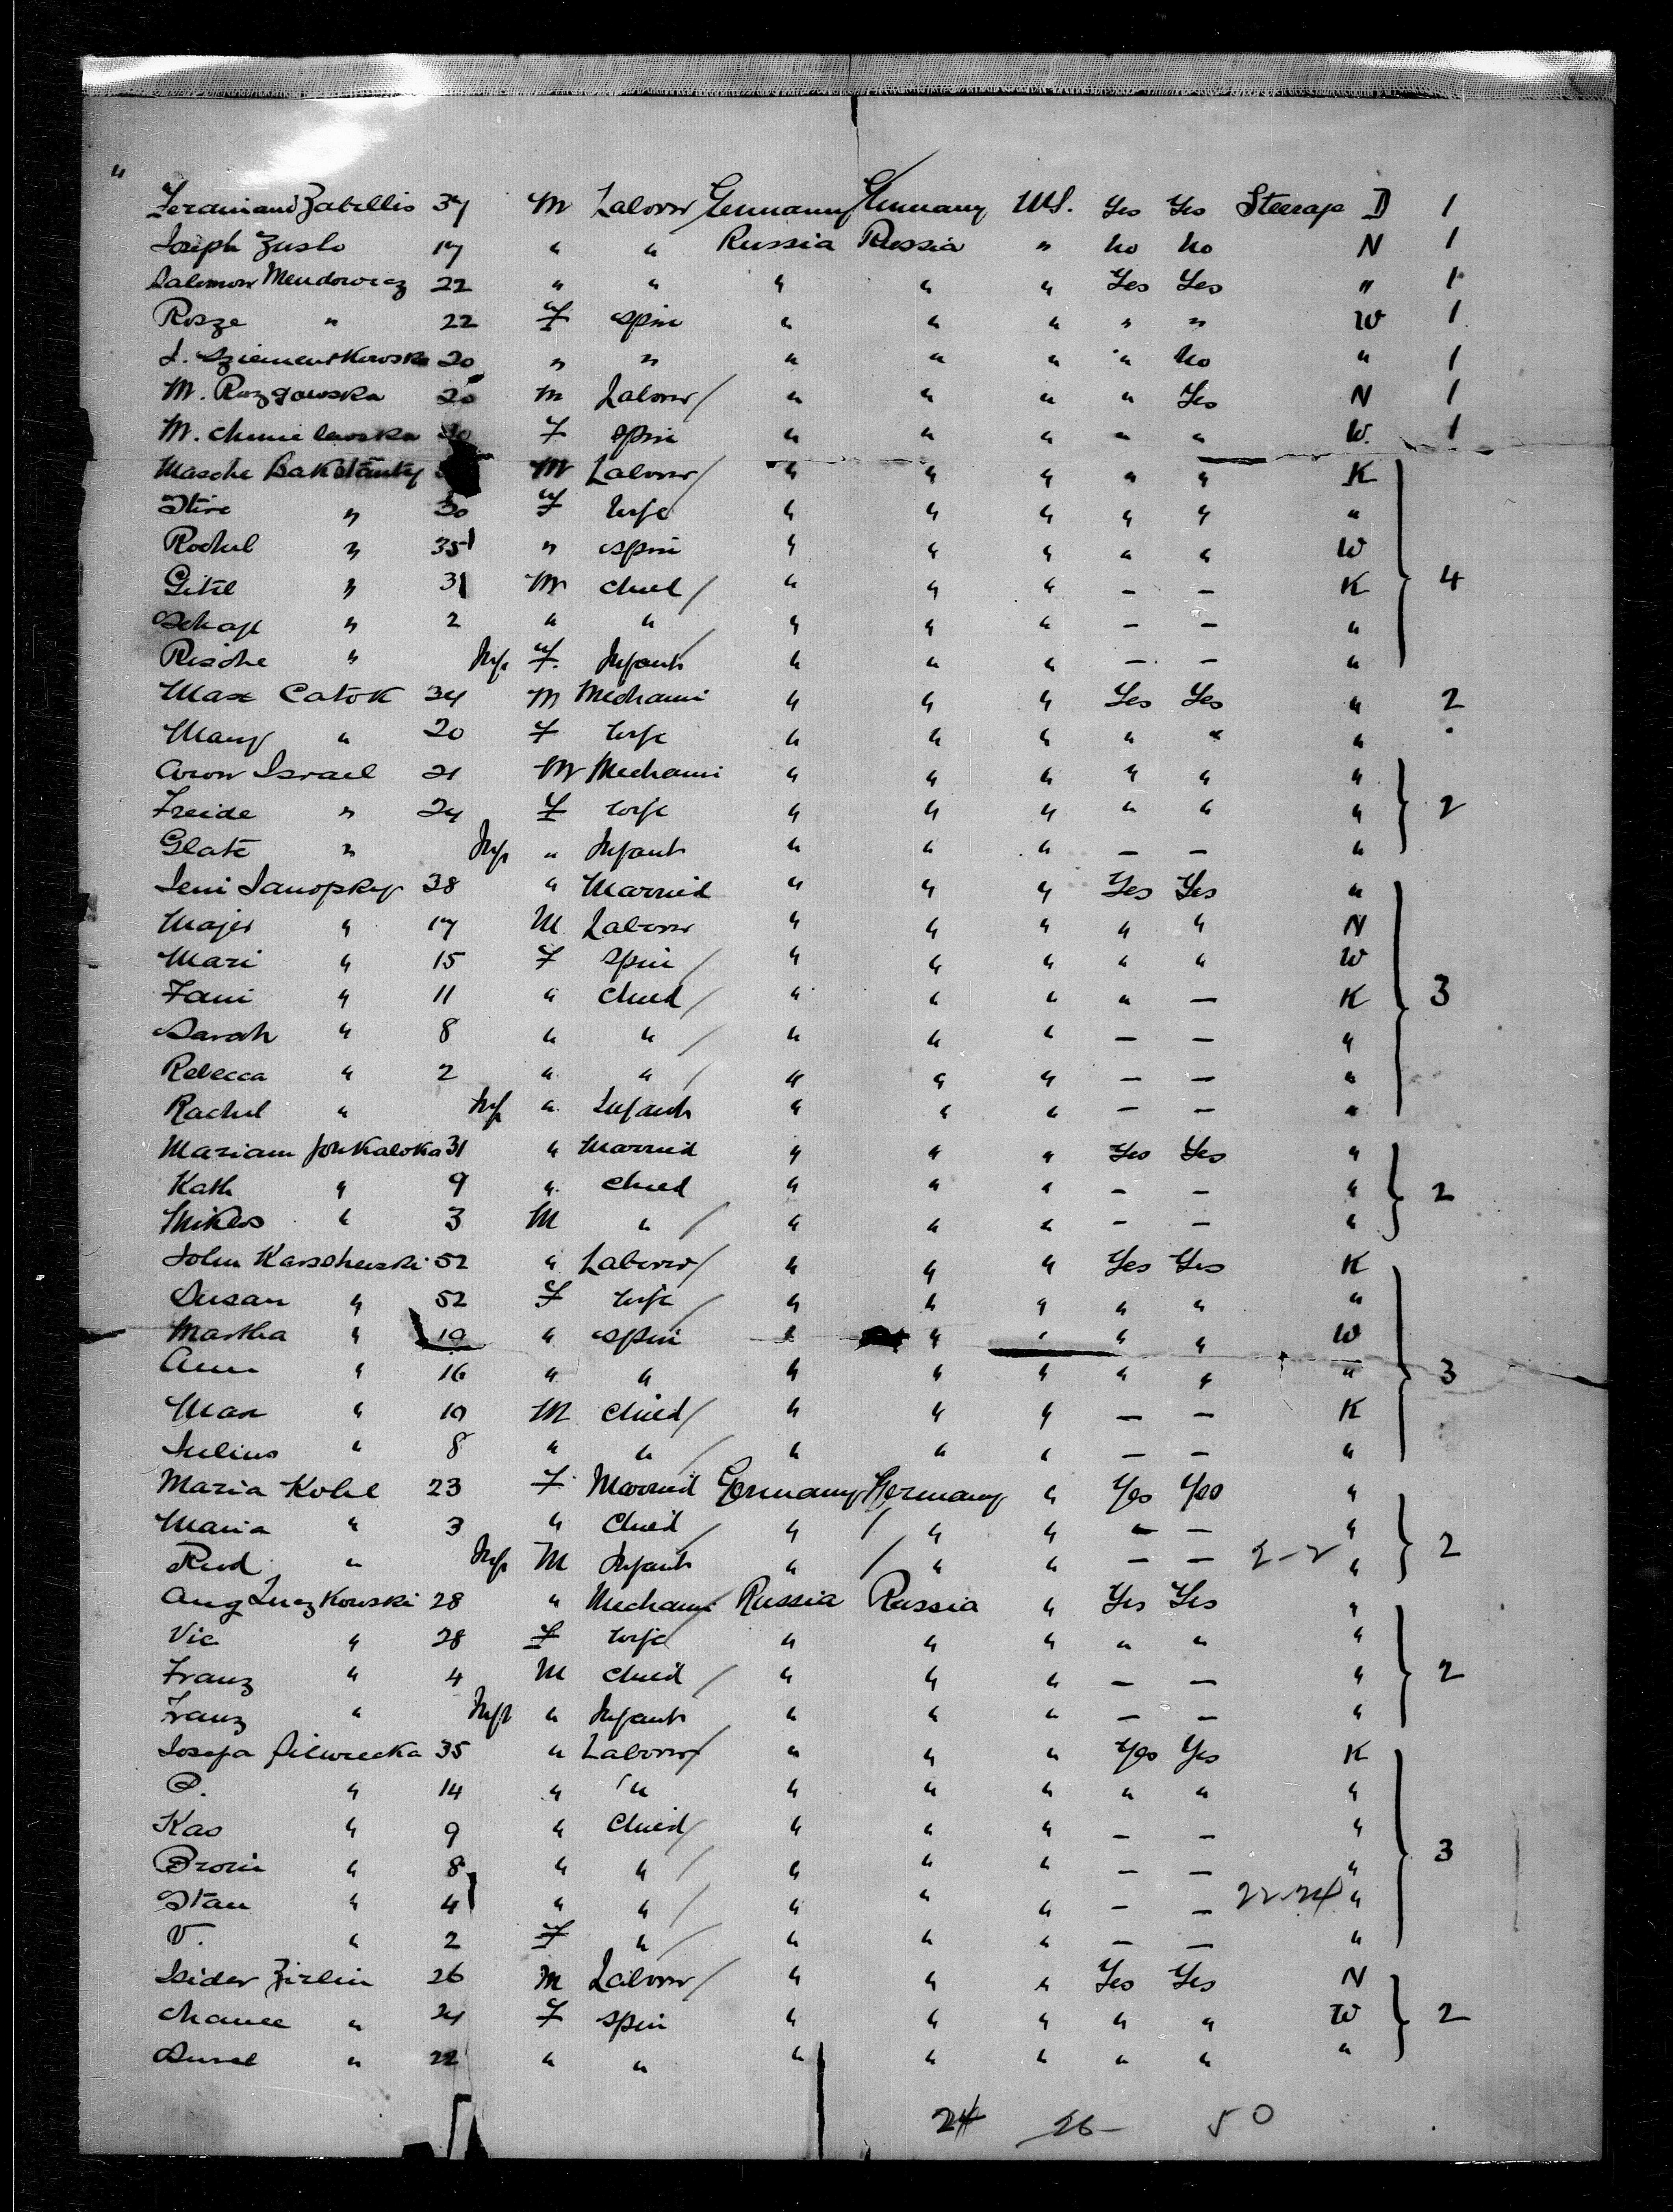 "
Ferdinand Zabellis 34 M Laborer Germany Germany U.S. Yes Yes Steerage D 1
Joseph Zuslo 17 " " Russia Russia " No No N 1
Salomon Mendowicz 22 " " " " " Yes Yes " 1
Rosze " 22 F spin " " " " " W 1
J. Sziementkowska 20 " " " " " " No " 1
M. Rozgowska 20 M Laborer " " " " Yes N 1
M. Chmielewska F spin " " " " " W. 1
Masche M Laborer " " " " " K
" 30 F Wife " " " " " "
Rochel " 35 " spin " " " " " W
Gitel " 3 M Child " " " – – K 4
Schap " 2 " " " " " – – "
Rische " Inf F. Infant " " " – – "
Max Catok 34 M Mechanic " " " Yes Yes " 2
Mary " 20 F Wife " " " " " "
Aron Israel 21 M Mechanic " " " " " "
Freide " 24 F Wife " " " " " " 2
Glate " Inf " Infant " " " – – "
Leni Janopsky 38 " Married " " " Yes Yes "
Majer " 17 M Laborer " " " " " N
Mari " 15 F spin " " " " " W
Fani " 11 " Child " " " " – K 3
Sarah " 8 " " " " " – – "
Rebecca " 2 " " " " " – – "
Rachel " Inf " Infant " " " – – "
Mariam 31 " Married " " " Yes Yes "
Kath " 9 " Child " " " – – " 2
Mikles " 3 M " " " " – – "
John Karschewski 52 " Laborer " " " Yes Yes K
Susan " 52 F Wife " " " " " "
Martha " 19 " spin " " " " " W
Ann " 16 " " " " " " " " 3
Max " 10 M Child " " " – – K
Julius " 8 " " " " " – – "
Maria Kohl 23 F Married Germany Germany " Yes Yes "
Maria " 3 " Child " " " – – " 2
Rud. " Inf M Infant " " " – – 2-2 "
Aug Luczkowski 28 " Mechanic Russia Russia " Yes Yes "
Vic " 28 F Wife " " " " " "
Franz " 4 M Child " " " – – " 2
Franz " Inf " Infant " " " – – "
Josefa 35 " Laborer " " " Yes Yes K
P. " 14 " " " " " " " "
Kas " 9 " Child " " " – – "
Broni " 8 " " " " " – – " 3
Stan " 4 " " " " " – – 22-24 "
V. " 2 F " " " " – – "
Isider Zirlin 26 M Laborer " " " Yes Yes N
Chanee " 24 F spin " " " " " W 2
" 22 " " " " " " " "
24 26- 50